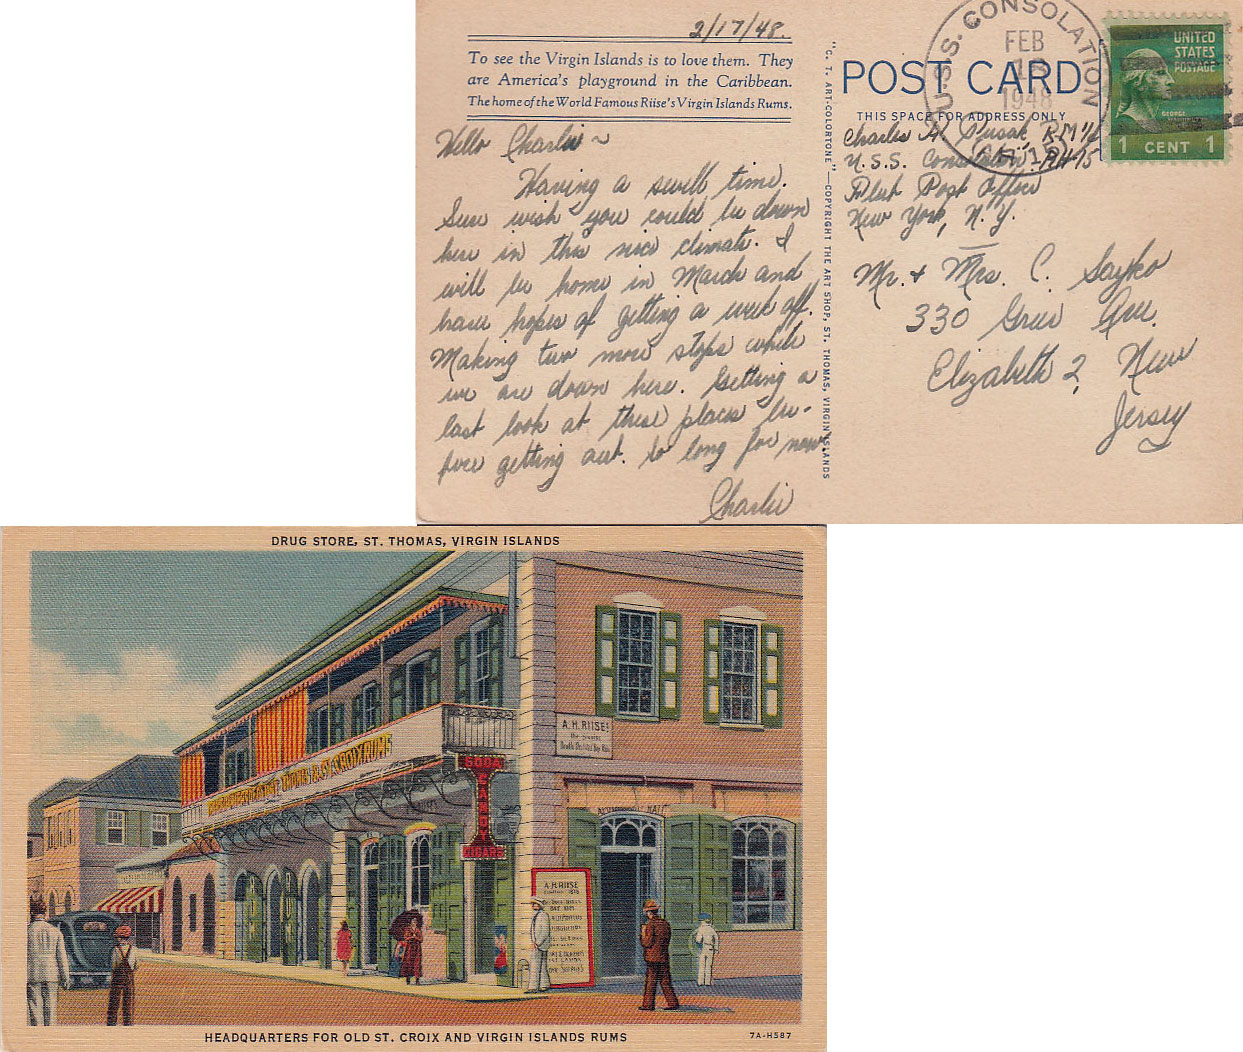 2/17/48.
To see the Virgin Islands is to love them. They
are America's playground in the Caribbean.
The home of the World Famous Riise's Virgin Islands Rums.
Hello Charlie ~
Having a swell time.
Sure wish you could be down
here in this nice climate. I
will be home in March and
have hopes of getting a week off.
Making two more stops while
we are down here. Getting a
last look at these places be-
fore getting out. So long for now
Charlie
"C. T. ART-COLORTONE" — COPYRIGHT THE ART SHOP, ST. THOMAS, VIRGIN ISLANDS
U.S.S. CONSOLATION
FEB
1948
(AH 15)
UNITED
STATES
POSTAGE
GEORGE
1 CENT 1
POST CARD
THIS SPACE FOR ADDRESS ONLY
Charles H.
U.S.S. Consolation AH-15
Fleet Post Office
New York, N.Y.
Mr. + Mrs. C. Sayko
330 Ave.
Elizabeth 2, New
Jersey
DRUG STORE, ST. THOMAS, VIRGIN ISLANDS
A. H. RIISE
ST. CROIX RUMS
SODA
CANDY
CIGARS
A.H. RIISE
HEADQUARTERS FOR OLD ST. CROIX AND VIRGIN ISLANDS RUMS
7A-H587